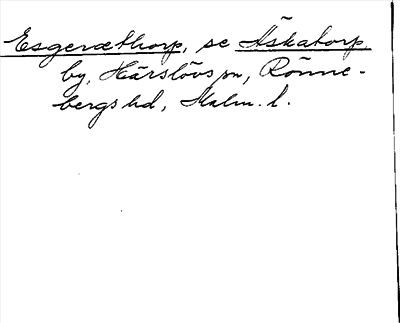 Esgerætthorp, se Äskatorp,
by, Härslövs sn, Rönne-
bergs hd, Malm. l.